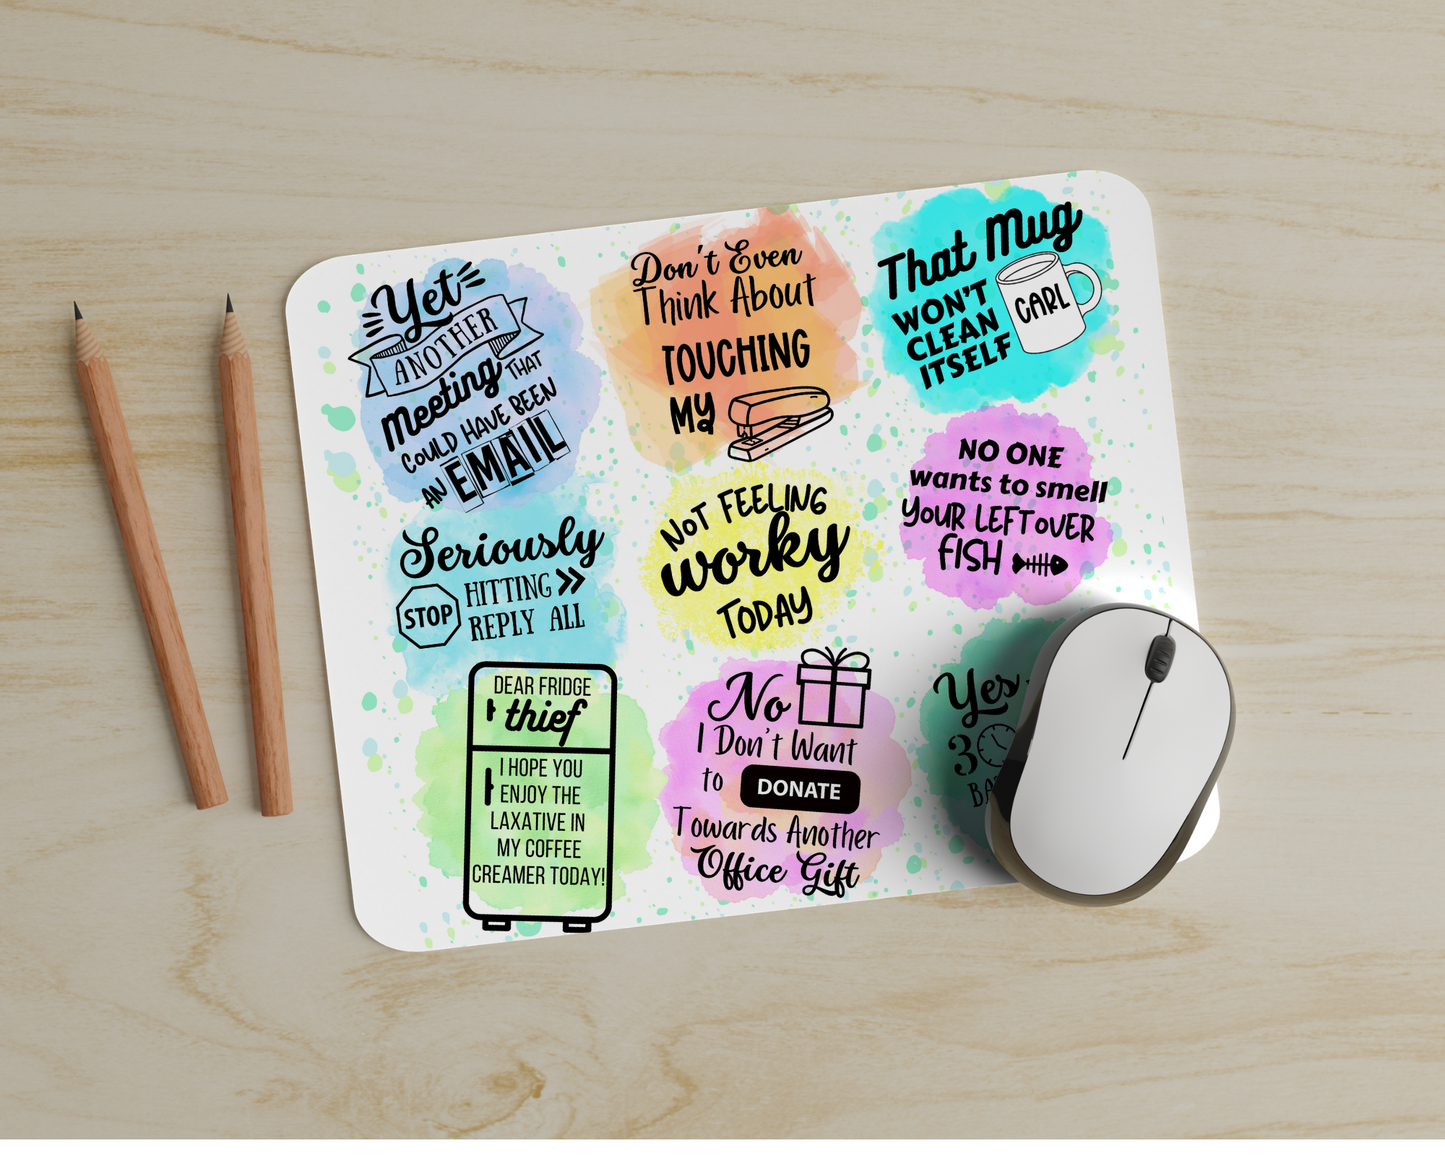 Yet
ANOTHER
Meeting THAT
COULD HAVE BEEN
AN EMAIL
Don't Even
Think About
TOUCHING
My
That Mug
WON'T
CLEAN
ITSELF
CARL
Seriously
STOP
HITTING
REPLY ALL
NOT FEELING
worky
TODAY
NO ONE
wants to smell
YOUR LEFTOVER
FISH
DEAR FRIDGE
thief
I HOPE YOU
ENJOY THE
LAXATIVE IN
MY COFFEE
CREAMER TODAY!
No
I Don't Want
to DONATE
Towards Another
Office Gift
Yes